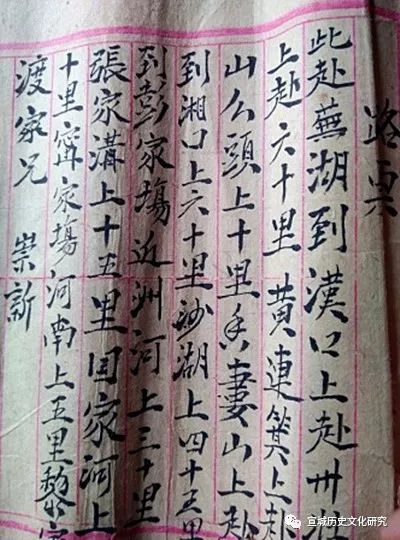 路票
此赴蕪湖到漢口上赴卅
上赴六十里 黄連箕上赴
山公頭上十里 妻山上赴
到湘口上六十里沙湖上四十五里
到彭家塲近洲河上三十里
張家溝上十五里 家河上
十里寗家塲河南上五里
渡家兄 崇新
宣城历史文化研究